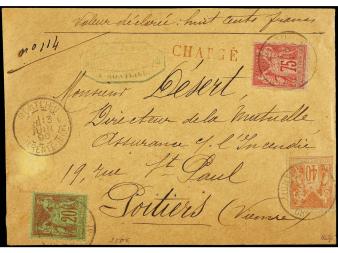 Valeur déclarée: huit cents francs
nº 114
CHARGÉ
75
Monsieur Désert,
Directeur de la Mutuelle
Assurance c/ l'Incendie
19, rue St Paul
Poitiers (Vienne)
40
20